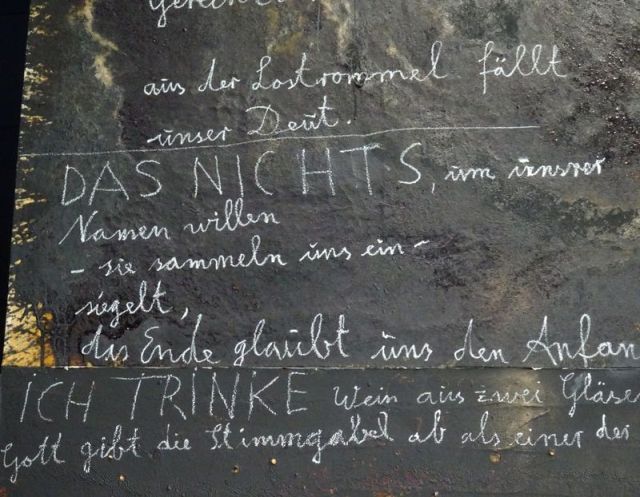 aus der Lostrommel fällt
unser Deut.
DAS NICHTS, um unsrer
Namen willen
- sie sammeln uns ein -
siegelt,
das Ende glaubt uns den Anfan
ICH TRINKE Wein aus zwei Gläse
Gott gibt die Stimmgabel ab als einer der